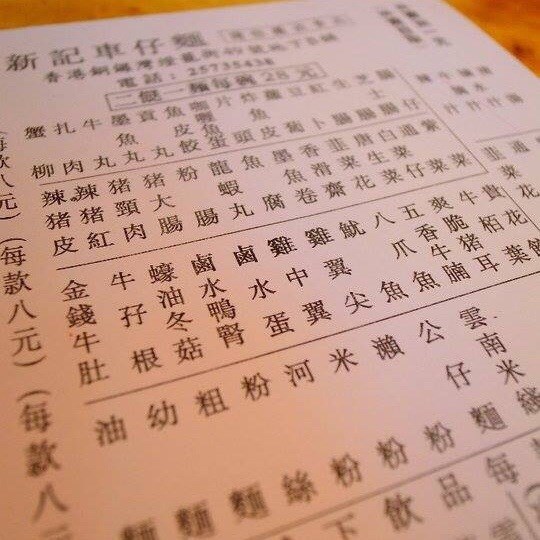 新記車仔麵
香港銅鑼灣
電話：25735438
二餸一麵每碗28元
(每款八元)
蟹柳
扎肉
牛丸
墨魚丸
貢丸
魚皮餃
咖喱魚蛋
片頭
炸魚皮
蘿蔔
豆卜
紅腸
生腸
芝士腸
腸仔
(每款八元)
辣豬皮
辣豬紅
豬頸肉
豬大腸
粉腸
龍蝦丸
魚腐
墨魚卷
香滑齋
韭菜花
唐生菜
白菜仔
通菜
紫菜
(每款八元)
金錢牛肚
牛孖根
蠔油冬菇
鹵水鴨腎
鹵水蛋
雞中翼
雞翼尖
魷魚
八爪魚
五香牛腩
爽脆豬耳
牛栢葉
油麵
幼麵
粗麵
粉絲
河粉
米粉
瀨粉
公仔麵
雲南米綫
下飲品每